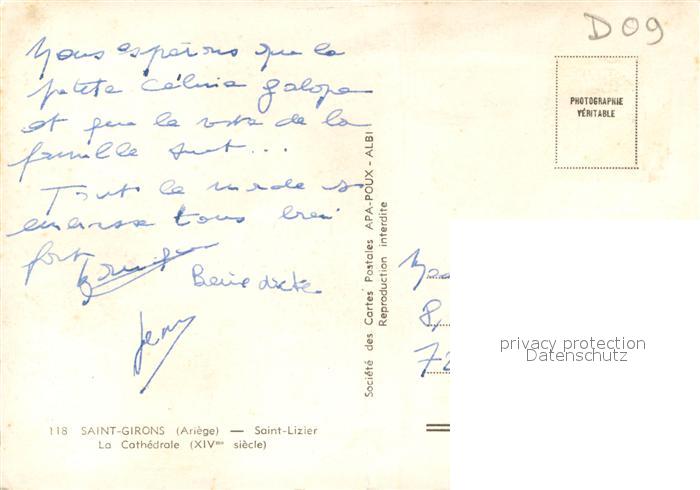 Nous espérons que la
petite Célina galope
et que le reste de la
famille suit...
Tout le monde se
embrasse tous bien
fort
Bénédicte
118 SAINT-GIRONS (Ariège) — Saint-Lizier
La Cathédrale (XIVme siècle)
Société des Cartes Postales APA-POUX - ALBI
Reproduction interdite
D09
PHOTOGRAPHIE
VÉRITABLE
8,
72
privacy protection
Datenschutz